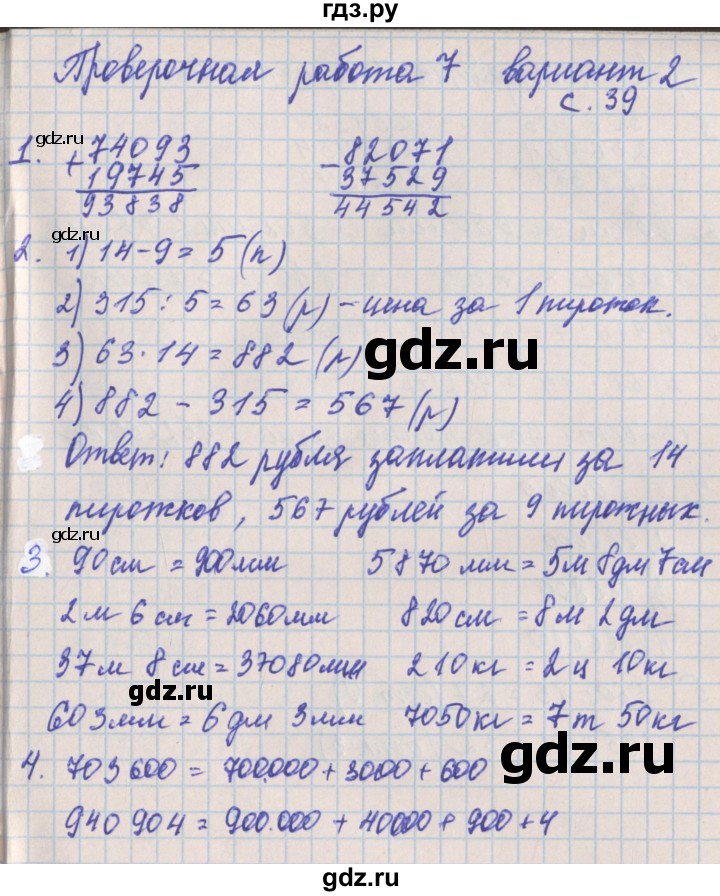 гдз.ру
Проверочная работа 7 вариант 2
с. 39
gdz.ru
1. + 74093 - 82071
19745 37529
93838 44542
gdz.ru
2. 1) 14 - 9 = 5 (п)
2) 315 : 5 = 63 (р) - цена за 1 пирожок.
3) 63 · 14 = 882 (р)
gdz.ru
4) 882 - 315 = 567 (р)
Ответ: 882 рубля заплатили за 14
пирожков, 567 рублей за 9 пирожных.
gdz.ru
3. 90 см = 900 мм 5870 мм = 5 м 8 дм 7 см
2 м 6 см = 2060 мм 820 см = 8 м 2 дм
37 м 8 см = 37080 мм 210 кг = 2 ц 10 кг
gdz.ru
603 мм = 6 дм 3 мм 7050 кг = 7 т 50 кг
4. 703 600 = 700.000 + 3000 + 600
gdz.ru
940 904 = 900.000 + 40000 + 900 + 4
gdz.ru